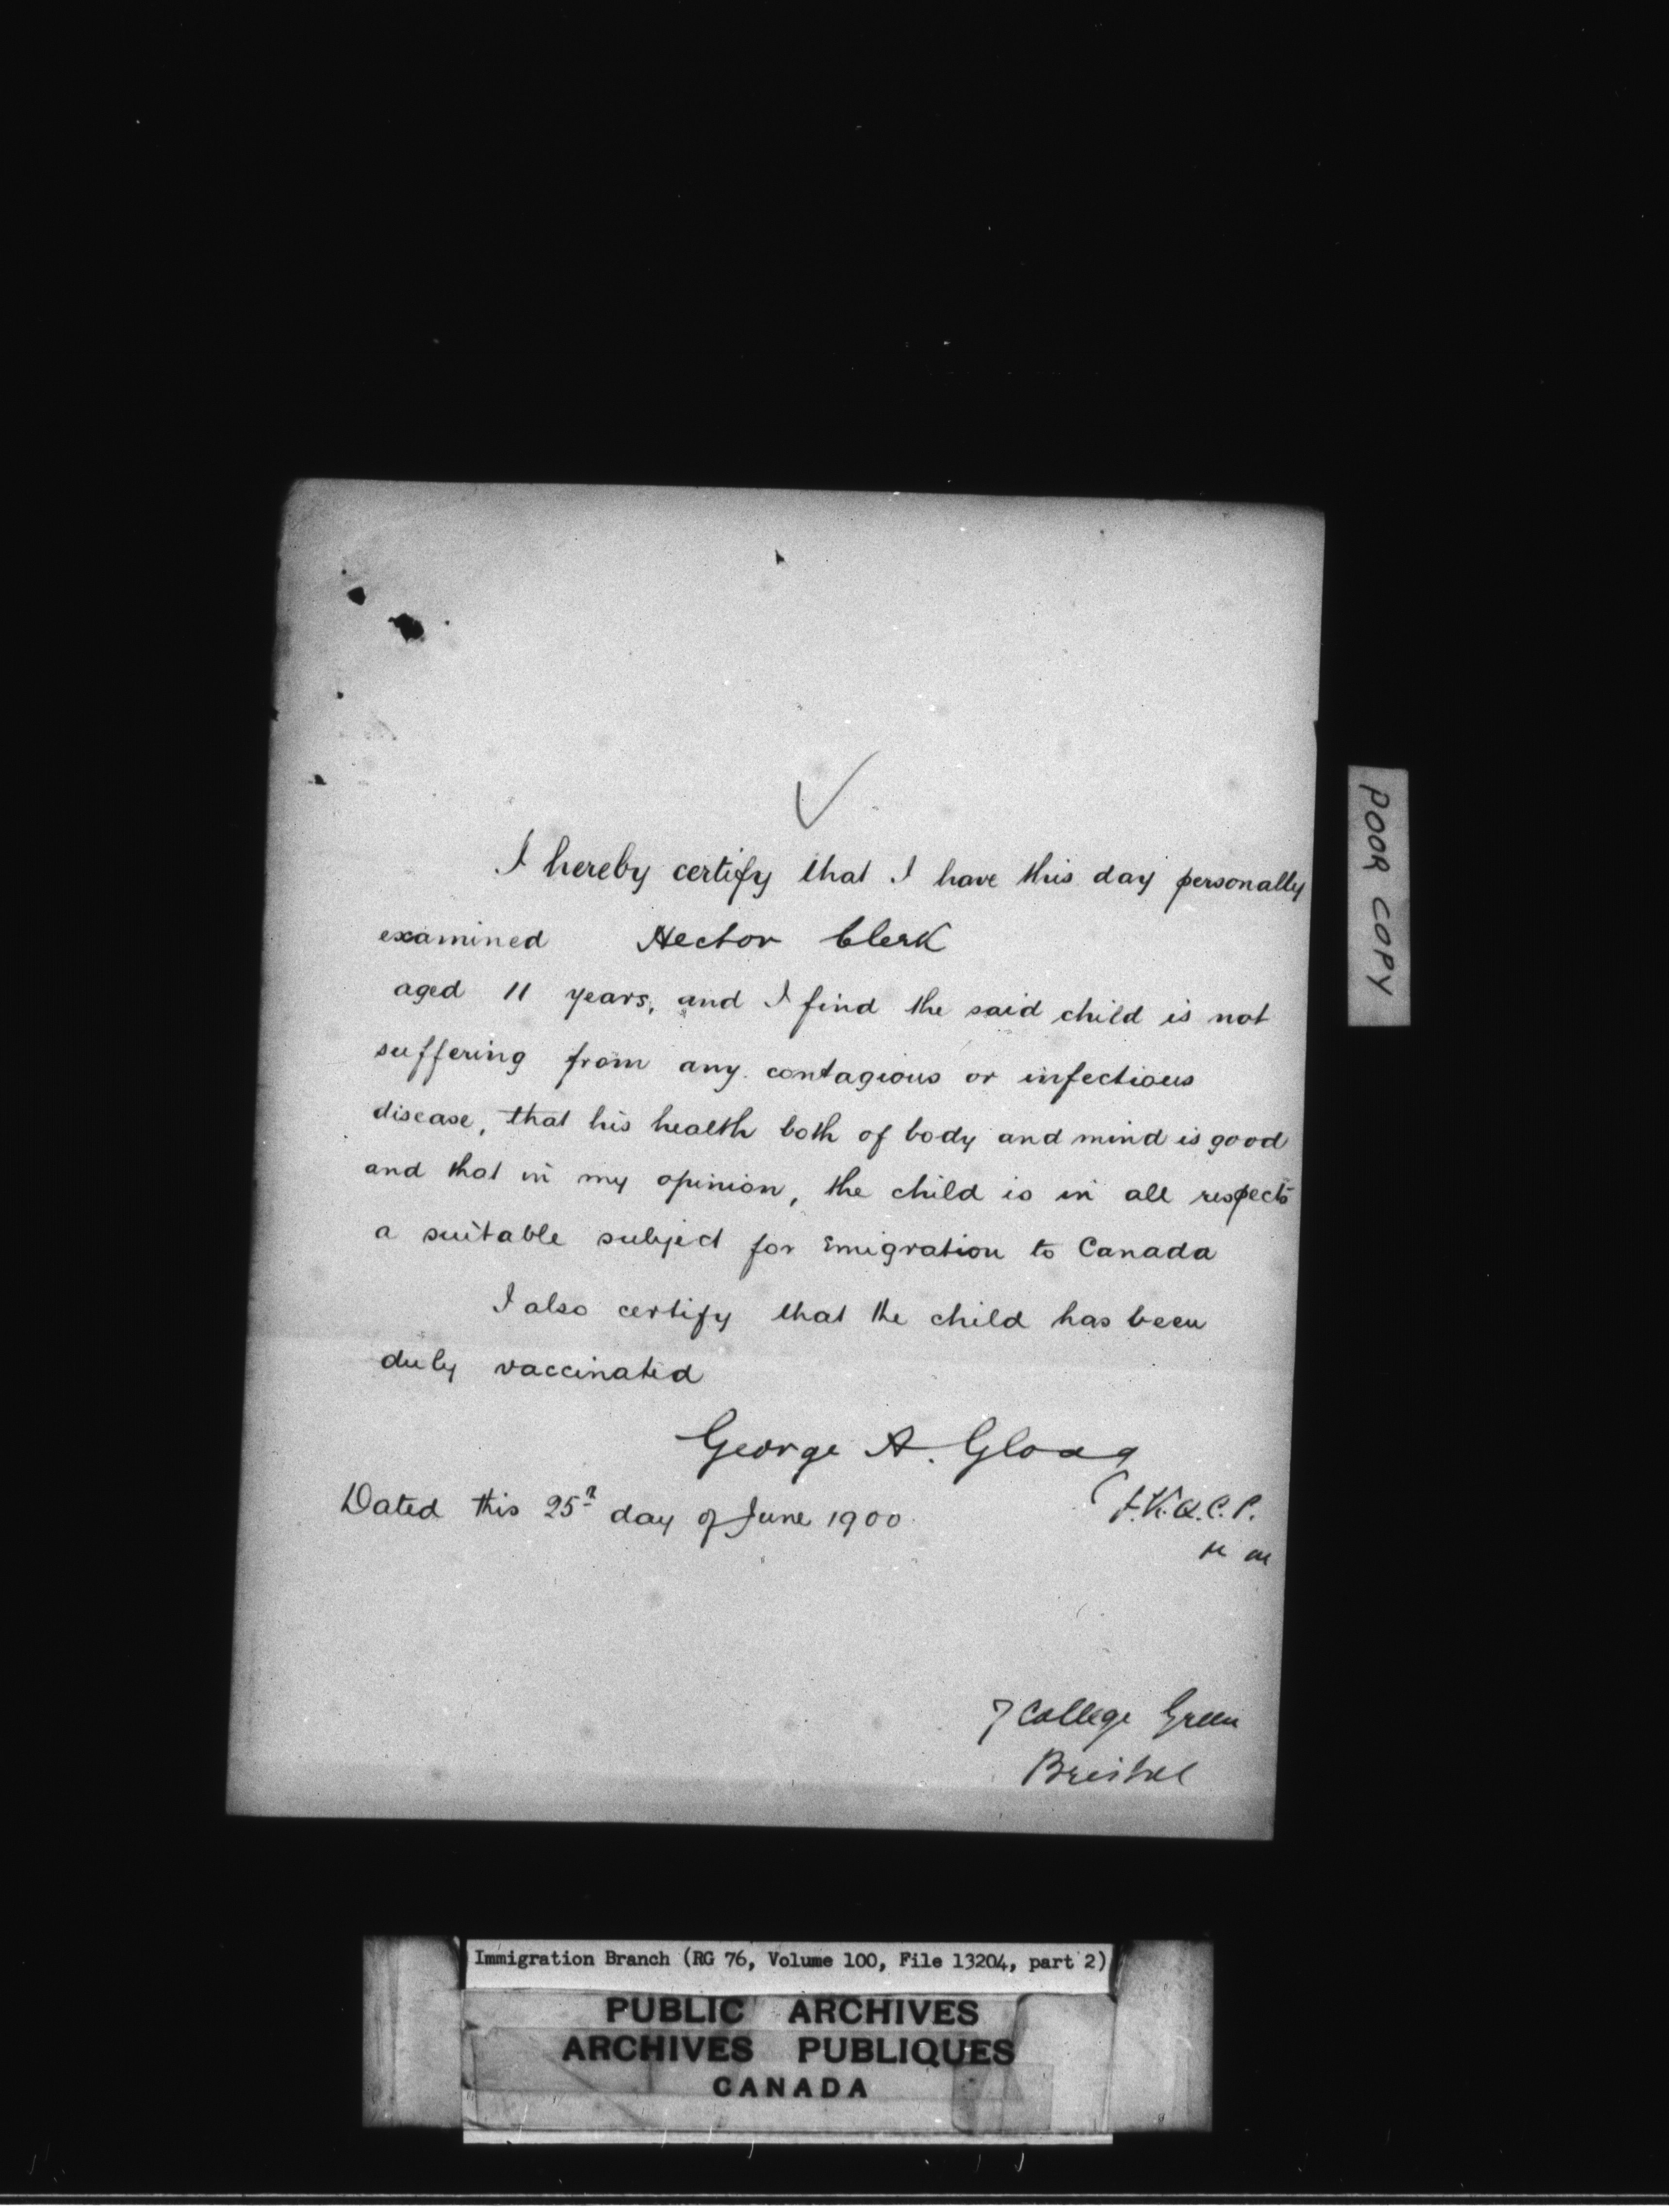 I hereby certify that I have this day personally
examined Hector Clerk
aged 11 years, and I find the said child is not
suffering from any contagious or infectious
disease, that his health both of body and mind is good
and that in my opinion, the child is in all respects
a suitable subject for Emigration to Canada
I also certify that the child has been
duly vaccinated
George A. Gloag
Dated this 25th day of June 1900
7 College Green
Bristol
POOR COPY
Immigration Branch (RG 76, Volume 100, File 13204, part 2)
PUBLIC ARCHIVES
ARCHIVES PUBLIQUES
CANADA